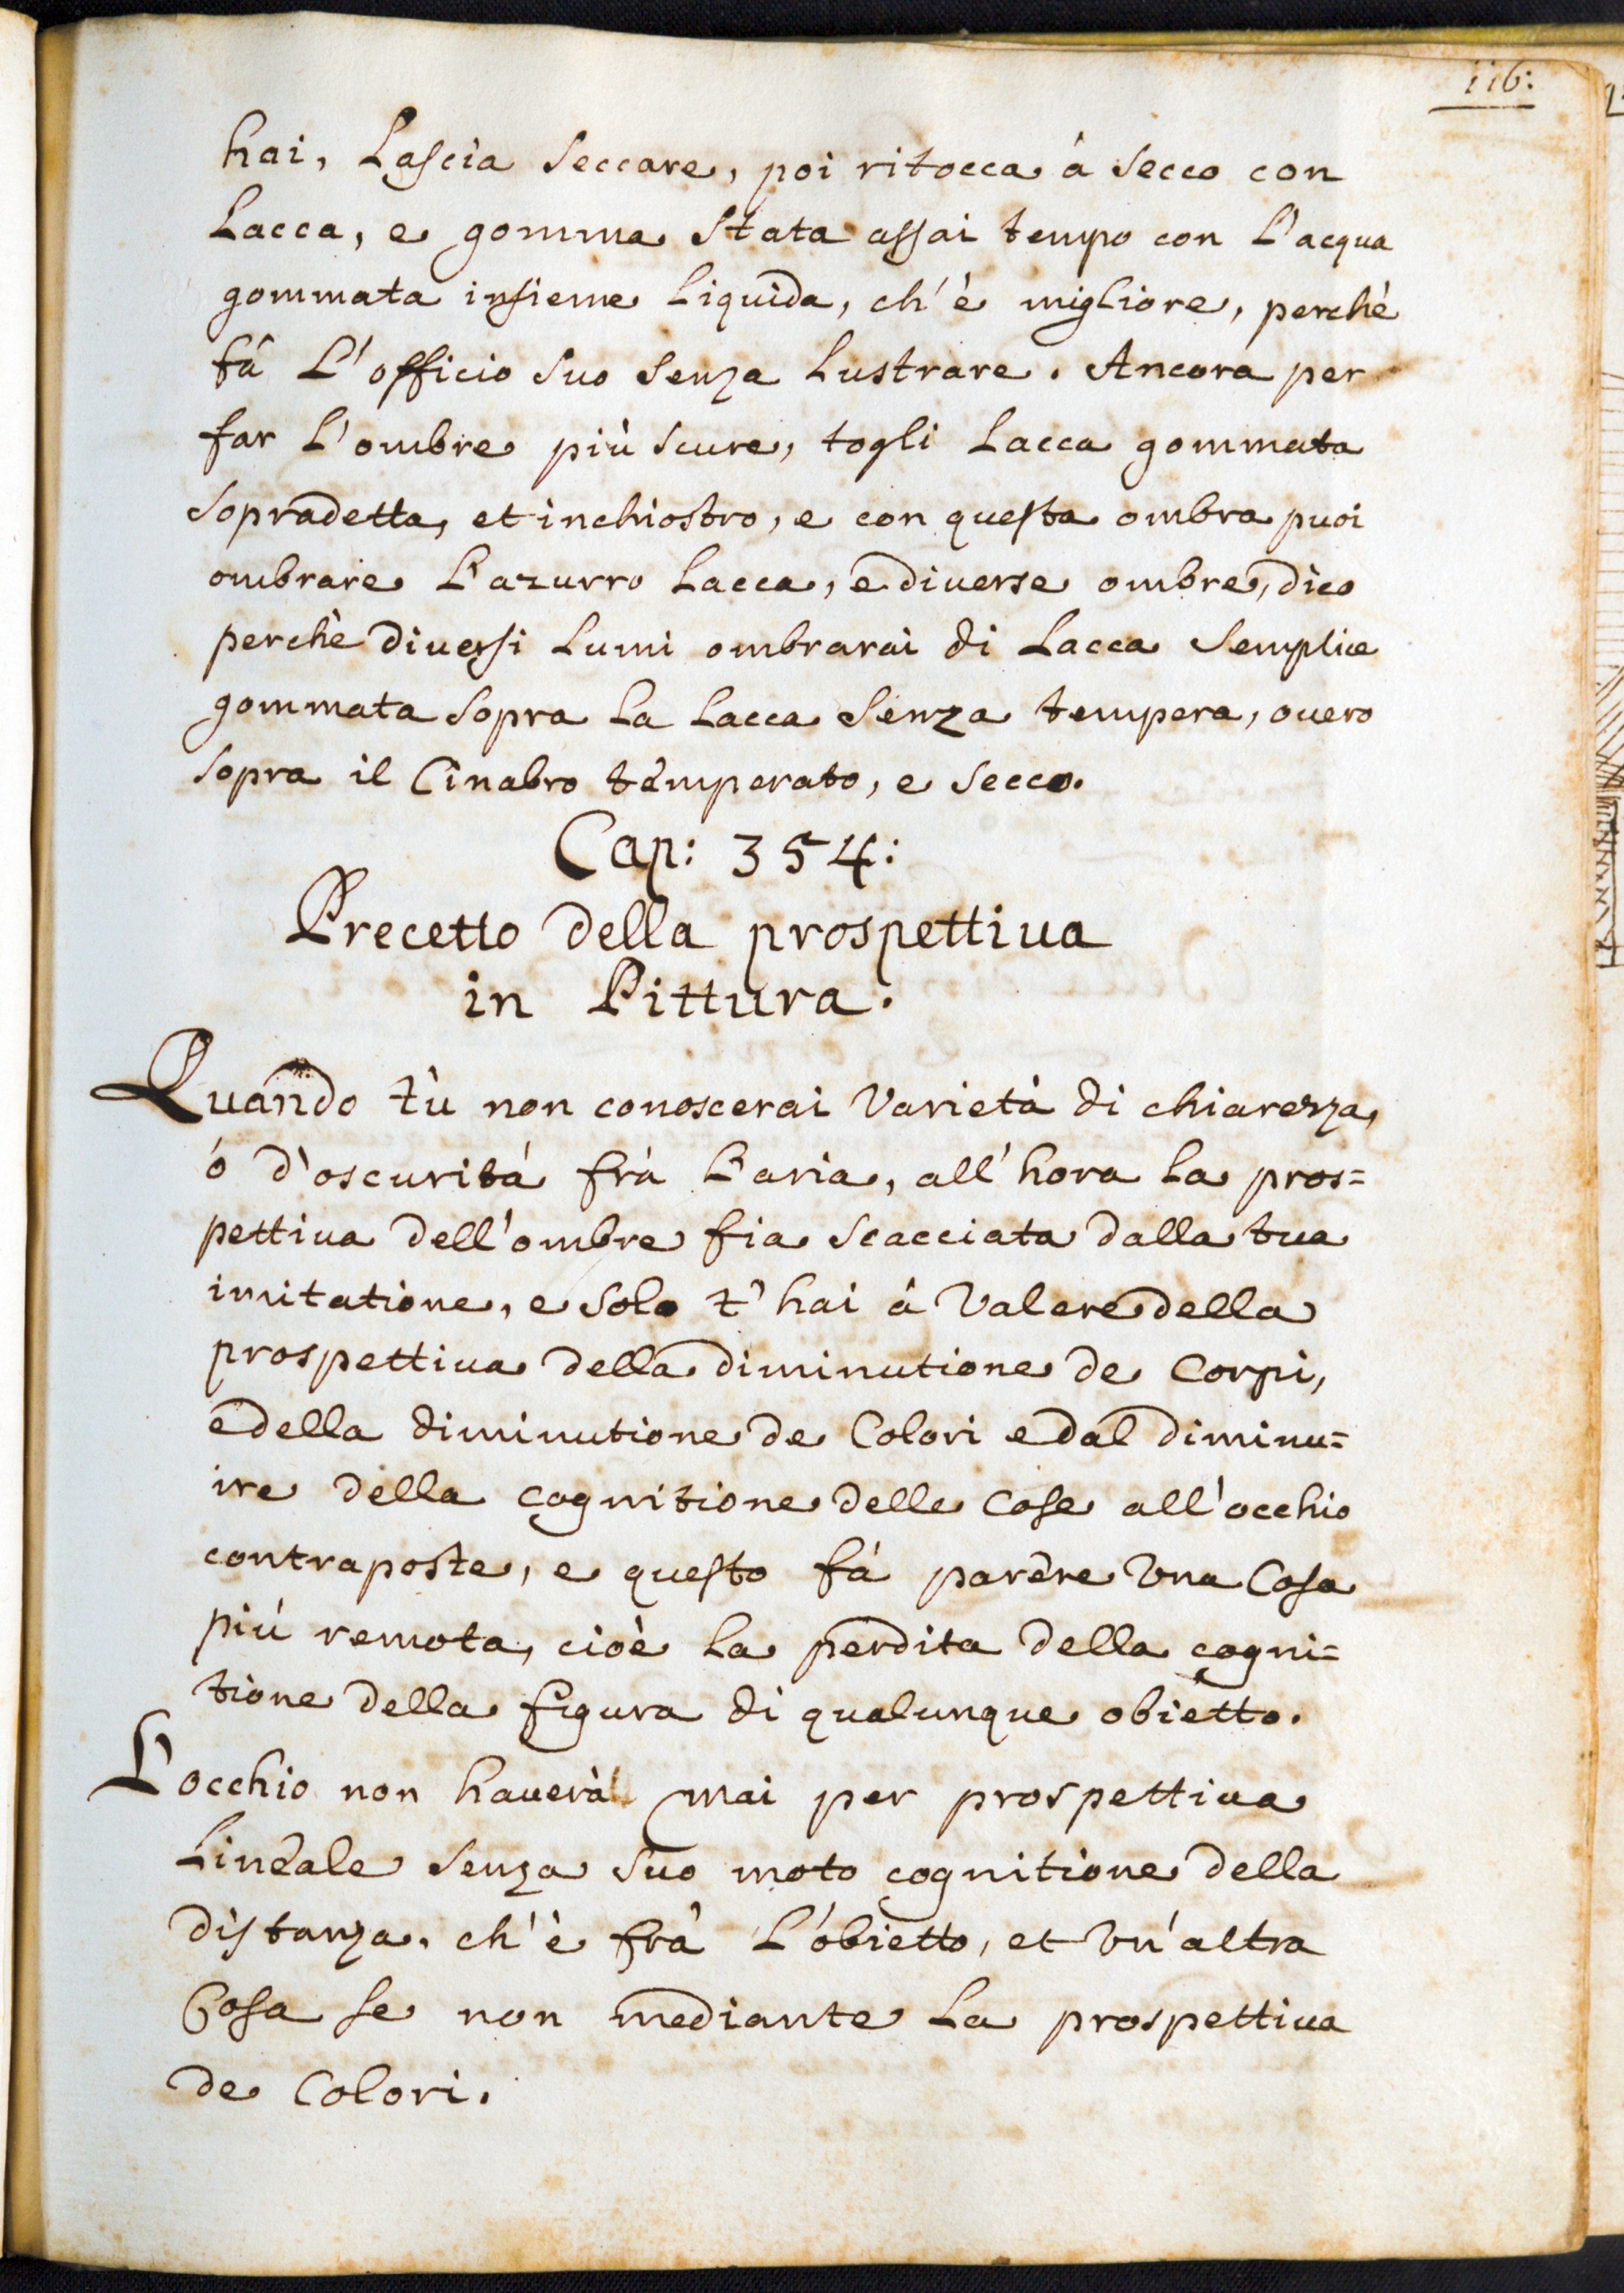 116:
hai, Lascia seccare, poi ritocca á secco con
Lacca, e gomma stata assai tempo con L'acqua
gommata insieme Liquida, ch'è migliore, perchè
fá L'officio suo senza Lustrare. Ancora per
far L'ombre più scure, togli Lacca gommata
sopradetta, et inchiostro, e con questa ombra puoi
ombrare L'azurro Lacca, e diuerse ombre, dico
perchè diuersi Lumi ombrarai di Lacca semplice
gommata sopra La Lacca senza tempera, ouero
sopra il Cinabro temperato, e secco.
Cap: 354:
Precetto della prospettiua
in Pittura.
Quando tù non conoscerai varietà di chiarezza,
ó d'oscuritá frà L'aria, all'hora La pros=
pettiua dell'ombre fia scacciata dalla tua
imitatione, e solo t'hai á valere della
prospettiua della diminutione de Corpi,
e della diminutione de Colori e dal diminu=
ire della cognitione delle Cose all'occhio
contraposte, e questo fá parere vna Cosa
piú remota, cioè La perdita della cogni=
tione della figura di qualunque obietto.
L'occhio non hauerà mai per prospettiua
Lineale senza suo moto cognitione della
distanza, ch'è frà L'obietto, et vn'altra
Cosa se non mediante La prospettiua
de Colori.